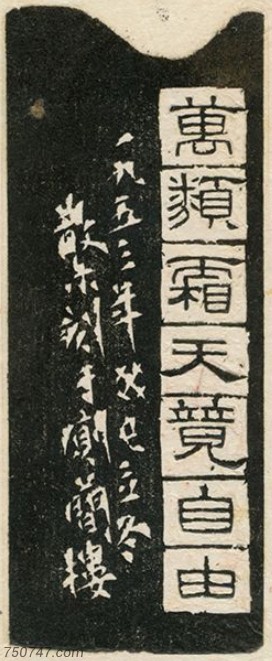 萬類霜天竟自由
一九五三年癸巳立冬
散木刻于廁簡樓
750747.com